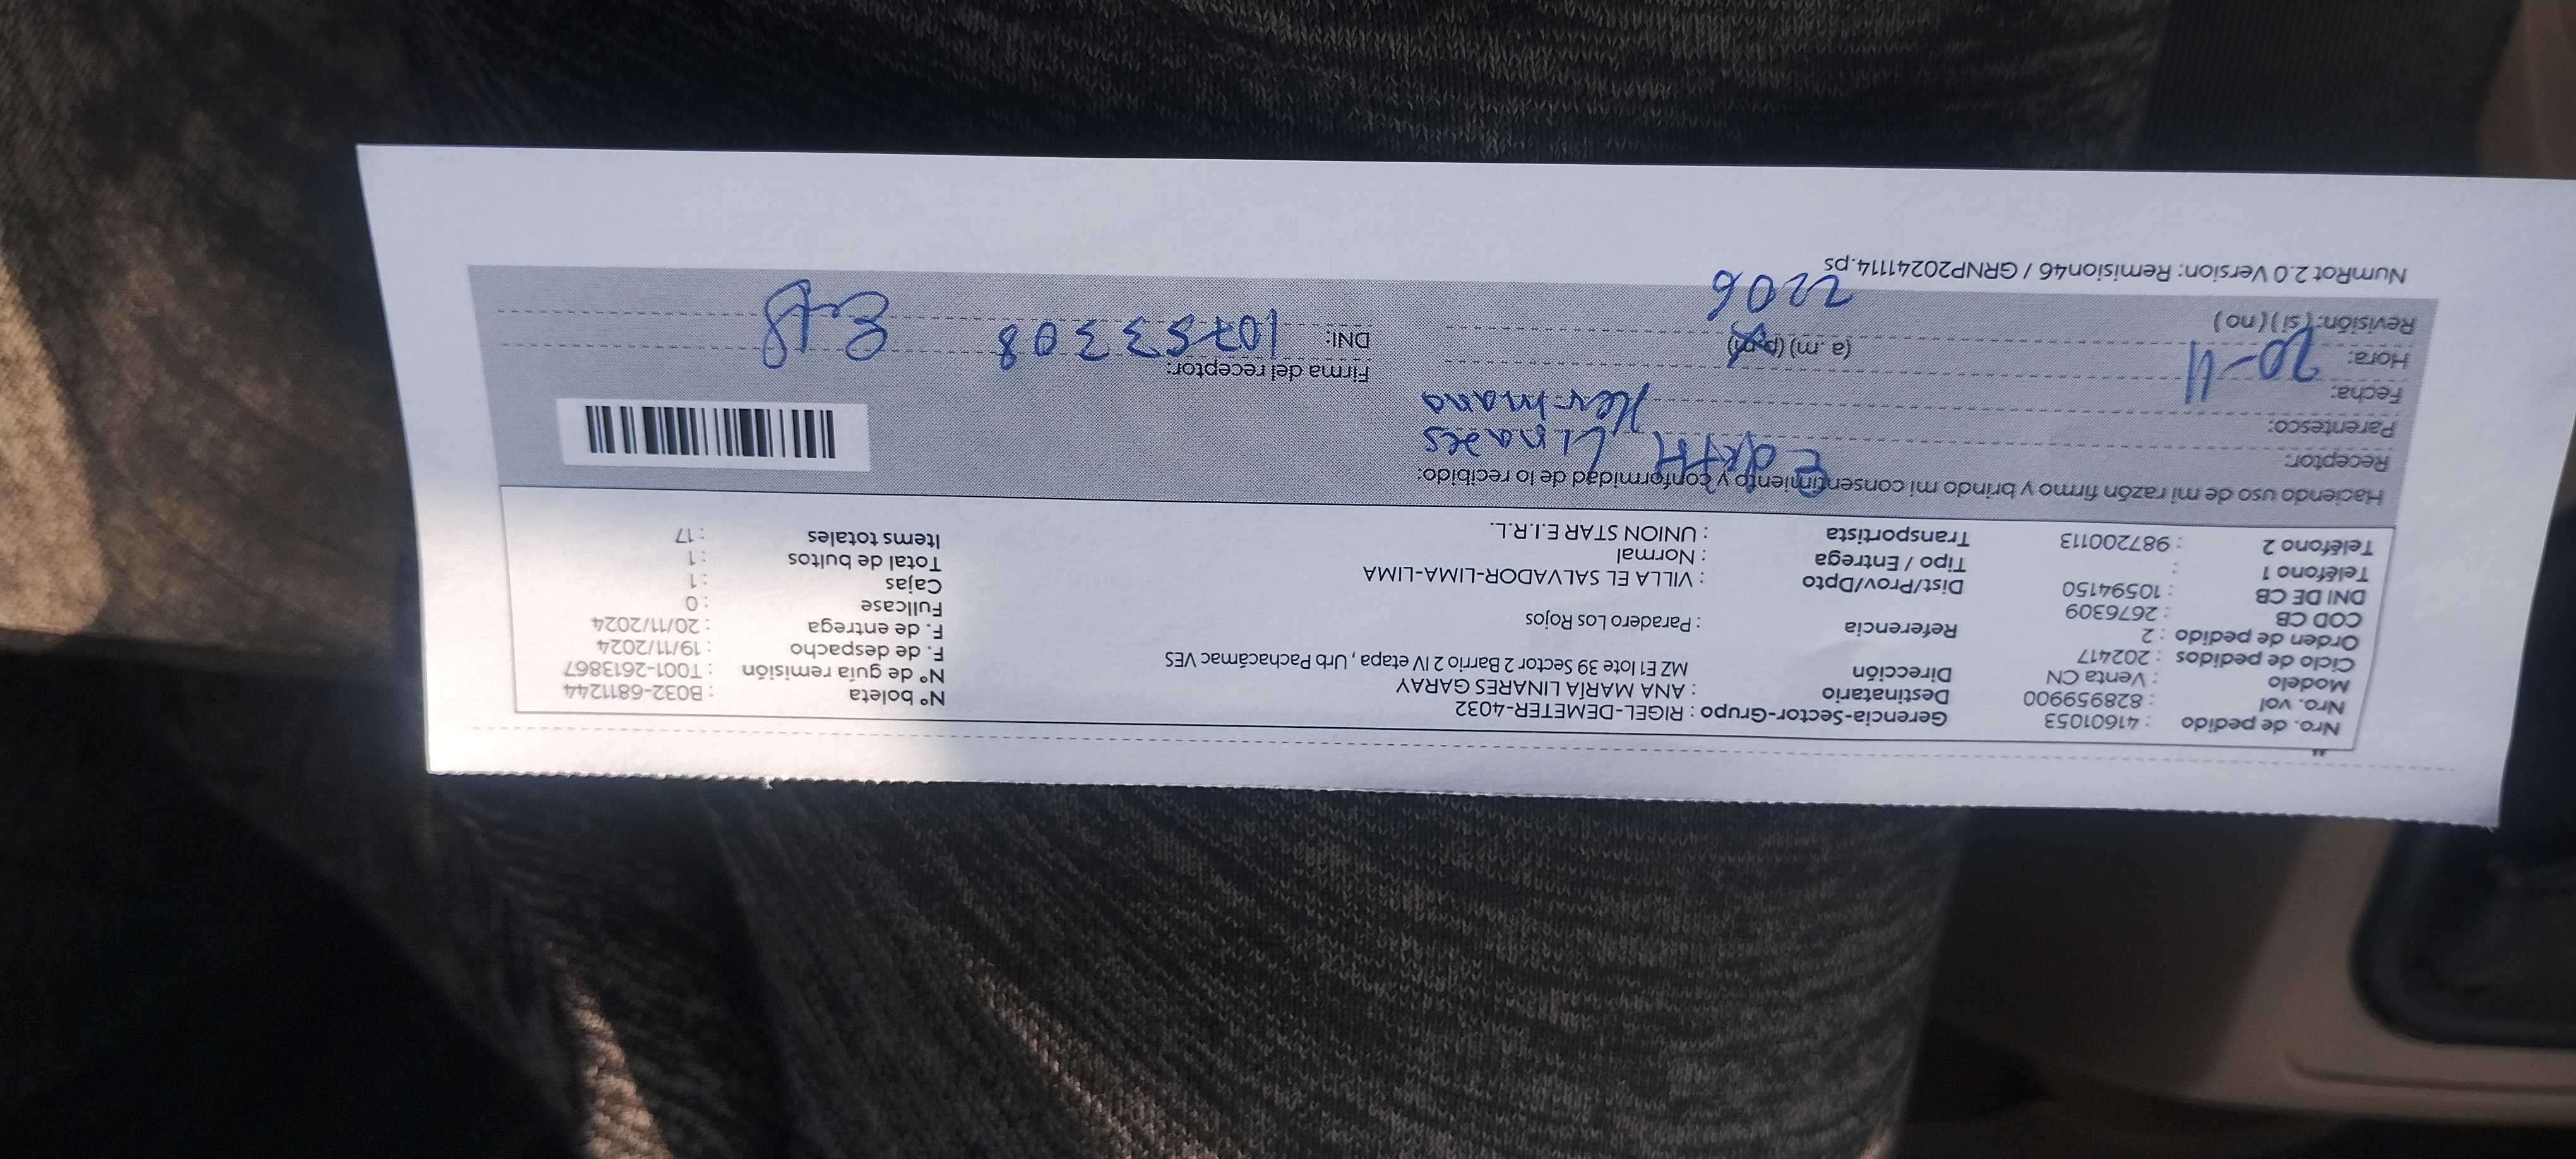 Nro. de pedido : 41601053 Gerencia-Sector-Grupo : RIGEL-DEMETER-4032
Nro. vol : 828959900 Destinatario : ANA MARÍA LINARES GARAY Nº boleta : B032-6811244
Modelo : Venta CN Dirección MZ E1 lote 39 Sector 2 Barrio 2 IV etapa , Urb Pachacámac VES Nº de guía remisión : T001-2613867
Ciclo de pedidos : 202417 F. de despacho : 19/11/2024
Orden de pedido : 2 Referencia : Paradero Los Rojos F. de entrega : 20/11/2024
COD CB : 2676309 Fullcase : 0
DNI DE CB : 10594150 Dist/Prov/Dpto : VILLA EL SALVADOR-LIMA-LIMA Cajas : 1
Teléfono 1 : Tipo / Entrega : Normal Total de bultos : 1
Teléfono 2 : 987200113 Transportista : UNION STAR E.I.R.L. Items totales : 17
Haciendo uso de mi razón firmo y brindo mi consentimiento y conformidad de lo recibido:
Receptor: Linares
Parentesco: Hermano
Fecha: 20-11 Firma del receptor:
Hora: (a .m) (p.m) DNI: 10753308
Revisión: ( si ) ( no ) 2206
NumRot 2.0 Version: Remision46 / GRNP20241114.ps